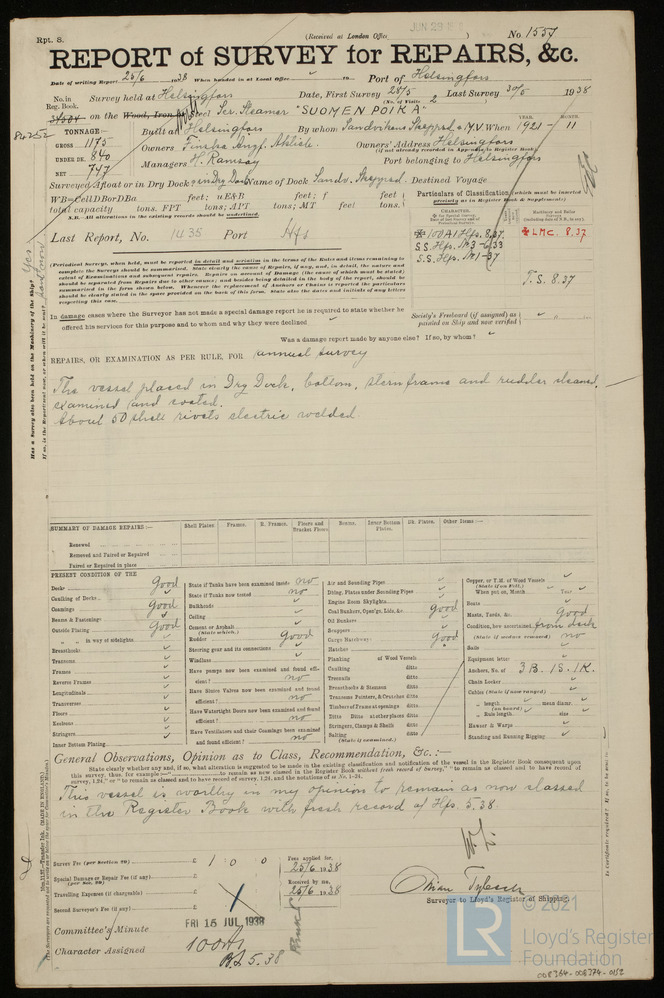 Rpt. 8.
(Received at London Office
JUN 29 19
No. 1557
REPORT of SURVEY for REPAIRS, &c.
Date of writing Report 25/6 1938 When handed in at Local Office to Port of Helsingfors
No. in Reg. Book. Survey held at Helsingfors Date, First Survey 28/5 Last Survey 30/5 1938
(No. of Visits 2
84252 on the Wood, Iron or Steel Scr. Steamer "SUOMEN POIKA"
TONNAGE:— Built at Helsingfors By whom Sandvikens Skeppsd. & M.V. When 1921 - 11
YEAR. MONTH.
GROSS 1175 Owners Finska Ångf. Aktieb. Owners' Address Helsingfors
(if not already recorded in Appendix to Register Book)
UNDER DK. 840
NET 747 Managers H. Ramsay Port belonging to Helsingfors
Surveyed Afloat or in Dry Dock? in Dry Dock Name of Dock Sandv. Skeppsd. Destined Voyage
WB=CellDBorDBa feet; uE&B feet; f feet
total capacity tons. FPT tons; APT tons; MT feet tons.
N.B. All alterations in the existing records should be underlined.
Last Report, No. 1435 Port Hfs
Particulars of Classification (which must be inserted precisely as in Register Book & Supplements)
✠ 100A1 Hfs. 8,37.
S.S. Hfs. No 3-6.33
S.S. Hfs. No 1-37
✠ LMC. 8.37
T.S. 8.37
(Periodical Surveys, when held, must be reported in detail and seriatim in the terms of the Rules and items remaining to complete the Surveys should be summarized. State clearly the cause of Repairs, if any, and, in detail, the nature and extent of Examinations and subsequent Repairs. Repairs on account of Damage (the cause of which must be stated) should be separated from Repairs due to other causes; and besides being detailed in the body of the report, should be summarized in the form shown below.
In damage cases where the Surveyor has not made a special damage report he is required to state whether he
offered his services for this purpose and to whom and why they were declined
Society's Freeboard (if assigned) as painted on Ship and now verified
Was a damage report made by anyone else? If so, by whom?
REPAIRS, OR EXAMINATION AS PER RULE, FOR annual survey
The vessel placed in Dry Dock, bottom, sternframe and rudder cleaned,
examined and coated.
About 50 shell rivets electric welded.
SUMMARY OF DAMAGE REPAIRS:— Shell Plates. Frames. R. Frames. Floors and Bracket Floors Beams. Inner Bottom Plates. Dk. Plates. Other Items:—
Renewed
Removed and Faired or Repaired
Faired or Repaired in place
PRESENT CONDITION OF THE
Decks good
Caulking of Decks
Coamings good
Beams & Fastenings
Outside Plating good
" " in way of sidelights
Breasthooks
Transoms
Frames
Reverse Frames
Longitudinals
Transverses
Floors
Keelsons
Stringers
Inner Bottom Plating
State if Tanks have been examined inside no
State if Tanks now tested no
Bulkheads
Ceiling
Cement or Asphalt
(State which.)
Rudder good
Steering gear and its connections
Windlass
Have pumps now been examined and found efficient? no
Have Sluice Valves now been examined and found efficient? no
Have Watertight Doors now been examined and found efficient? no
Have Ventilators and their Coamings been examined and found efficient? no
Air and Sounding Pipes
Dblng. Plates under Sounding Pipes
Engine Room Skylights
Coal Bunkers, Open'gs, Lids, &c. good
Oil Bunkers
Scuppers
Cargo Hatchways good
Hatches
Planking of Wood Vessels
Caulking ditto
Treenails ditto
Breasthooks & Stemson ditto
Transoms, Pointers, & Crutches ditto
Timbers of Frame at openings ditto
Ditto Ditto at other places ditto
Stringers, Clamps & Shelfs ditto
Salting ditto
(State if examined.)
Copper, or Y.M. of Wood Vessels
(State if on Felt.)
When put on, Month Year
Boats
Masts, Yards, &c. Good
Condition, how ascertained from deck
(State if wedges removed) no
Sails
Equipment letter
Anchors, No. of 3B. 1S. 1K.
Chain Locker
Cables (State if now ranged)
" length mean diamr.
(on board)
" Rule length size
Hawser & Warps
Standing and Running Rigging
General Observations, Opinion as to Class, Recommendation, &c.:—
State clearly whether any, and if so, what alteration is suggested to be made in the existing classification and notification of the vessel in the Register Book consequent upon
this survey, thus, for example:— to remain as classed in the Register Book without fresh record of Survey," "to remain as classed and to have record of
survey, 1,24," or "to remain as classed and to have record of survey, 1,24, and the notations of
This vessel is worthy in my opinion to remain as now classed
in the Register Book with fresh record of Hfs. 5.38.
Survey Fee (per Section 29) £ 1 0 0 Fees applied for, 25/6 1938
Special Damage or Repair Fee (if any) £
(per Sec. 29)
Received by me, 25/6 1938
Travelling Expenses (if chargeable) £
Second Surveyor's Fee (if any) £
Surveyor to Lloyd's Register of Shipping.
Committee's Minute FRI 15 JUL 1938
Character Assigned 100A1
5.38
© 2021
LR
Lloyd's Register
Foundation
008364-008374-0152